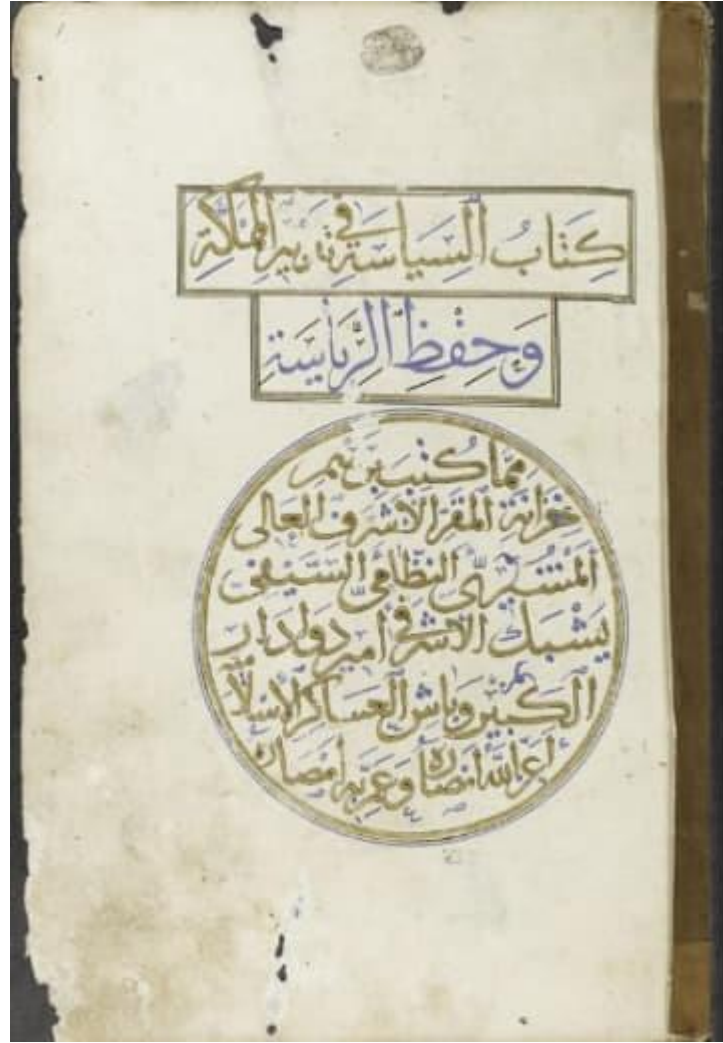 كِتَابُ السِّيَاسَةِ فِي تدبير المملكةِ
وَحِفْظِ الرِّيَاسَةِ
مما كتب برسم
خزانة المقر الأشرف العالى
النظامي السيفى
يشبك الأشرفي أمير دوادار
الكبير وباش العساكر الإسلا
أعز الله أنصاره وعمر به أمصاره